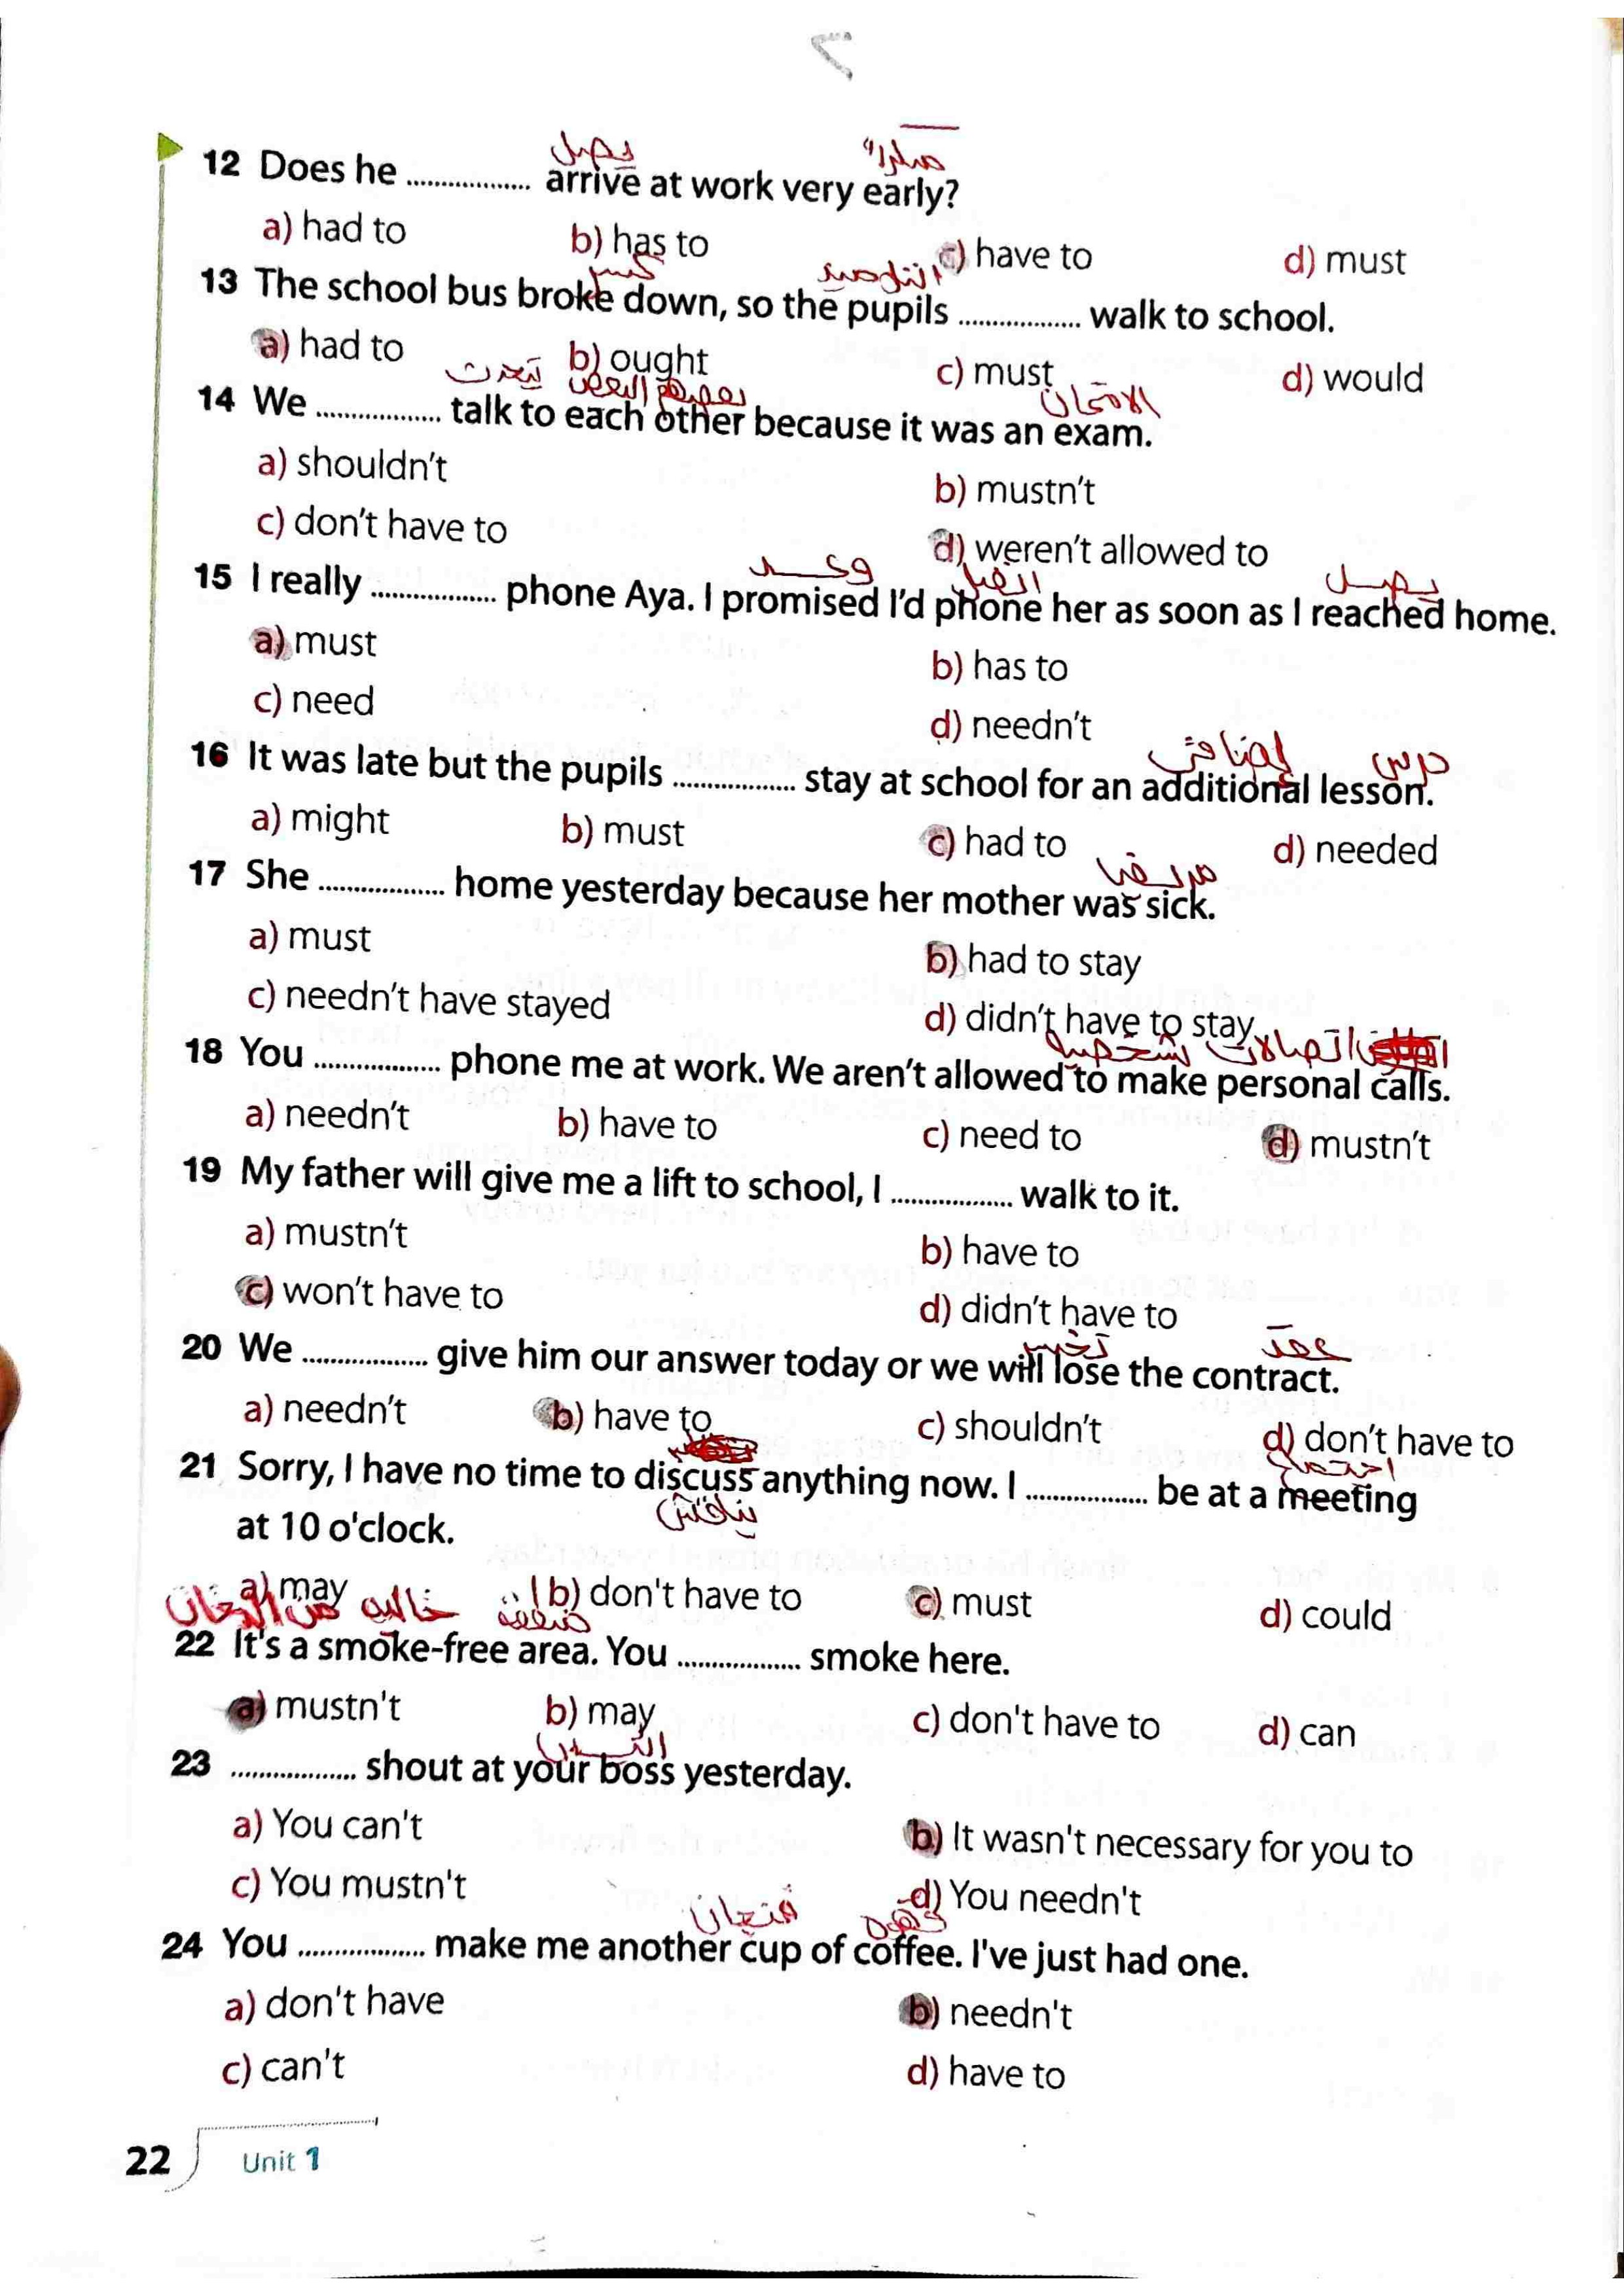 ٢
يصل مبكرا"
12 Does he .................. arrive at work very early?
a) had to b) has to c) have to d) must
كسر التلاميذ
13 The school bus broke down, so the pupils .................. walk to school.
a) had to b) ought c) must d) would
يتحدث بعضهم البعض الامتحان
14 We .................. talk to each other because it was an exam.
a) shouldn't b) mustn't
c) don't have to d) weren't allowed to
وعد يصل
15 I really .................. phone Aya. I promised I'd phone her as soon as I reached home.
a) must b) has to
c) need d) needn't
إضافى درس
16 It was late but the pupils .................. stay at school for an additional lesson.
a) might b) must c) had to d) needed
مريضه
17 She .................. home yesterday because her mother was sick.
a) must b) had to stay
c) needn't have stayed d) didn't have to stay
اتصالات شخصيه
18 You .................. phone me at work. We aren't allowed to make personal calls.
a) needn't b) have to c) need to d) mustn't
19 My father will give me a lift to school, I .................. walk to it.
a) mustn't b) have to
c) won't have to d) didn't have to
عقد
20 We .................. give him our answer today or we will lose the contract.
a) needn't b) have to c) shouldn't d) don't have to
اجتماع
21 Sorry, I have no time to discuss anything now. I .................. be at a meeting
at 10 o'clock.
يناقش
a) may b) don't have to c) must d) could
منطقة خاليه من الدخان
22 It's a smoke-free area. You .................. smoke here.
a) mustn't b) may c) don't have to d) can
23 .................. shout at your boss yesterday.
a) You can't b) It wasn't necessary for you to
c) You mustn't d) You needn't
فنجان قهوه
24 You .................. make me another cup of coffee. I've just had one.
a) don't have b) needn't
c) can't d) have to
22 Unit 1